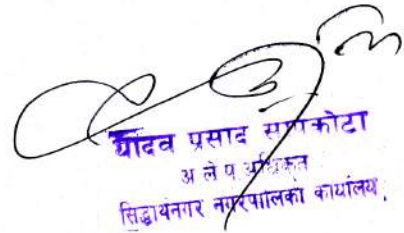 यादव प्रसाद सापकोटा
अ ले प अधिकृत
सिद्धार्थनगर नगरपालिका कार्यालय